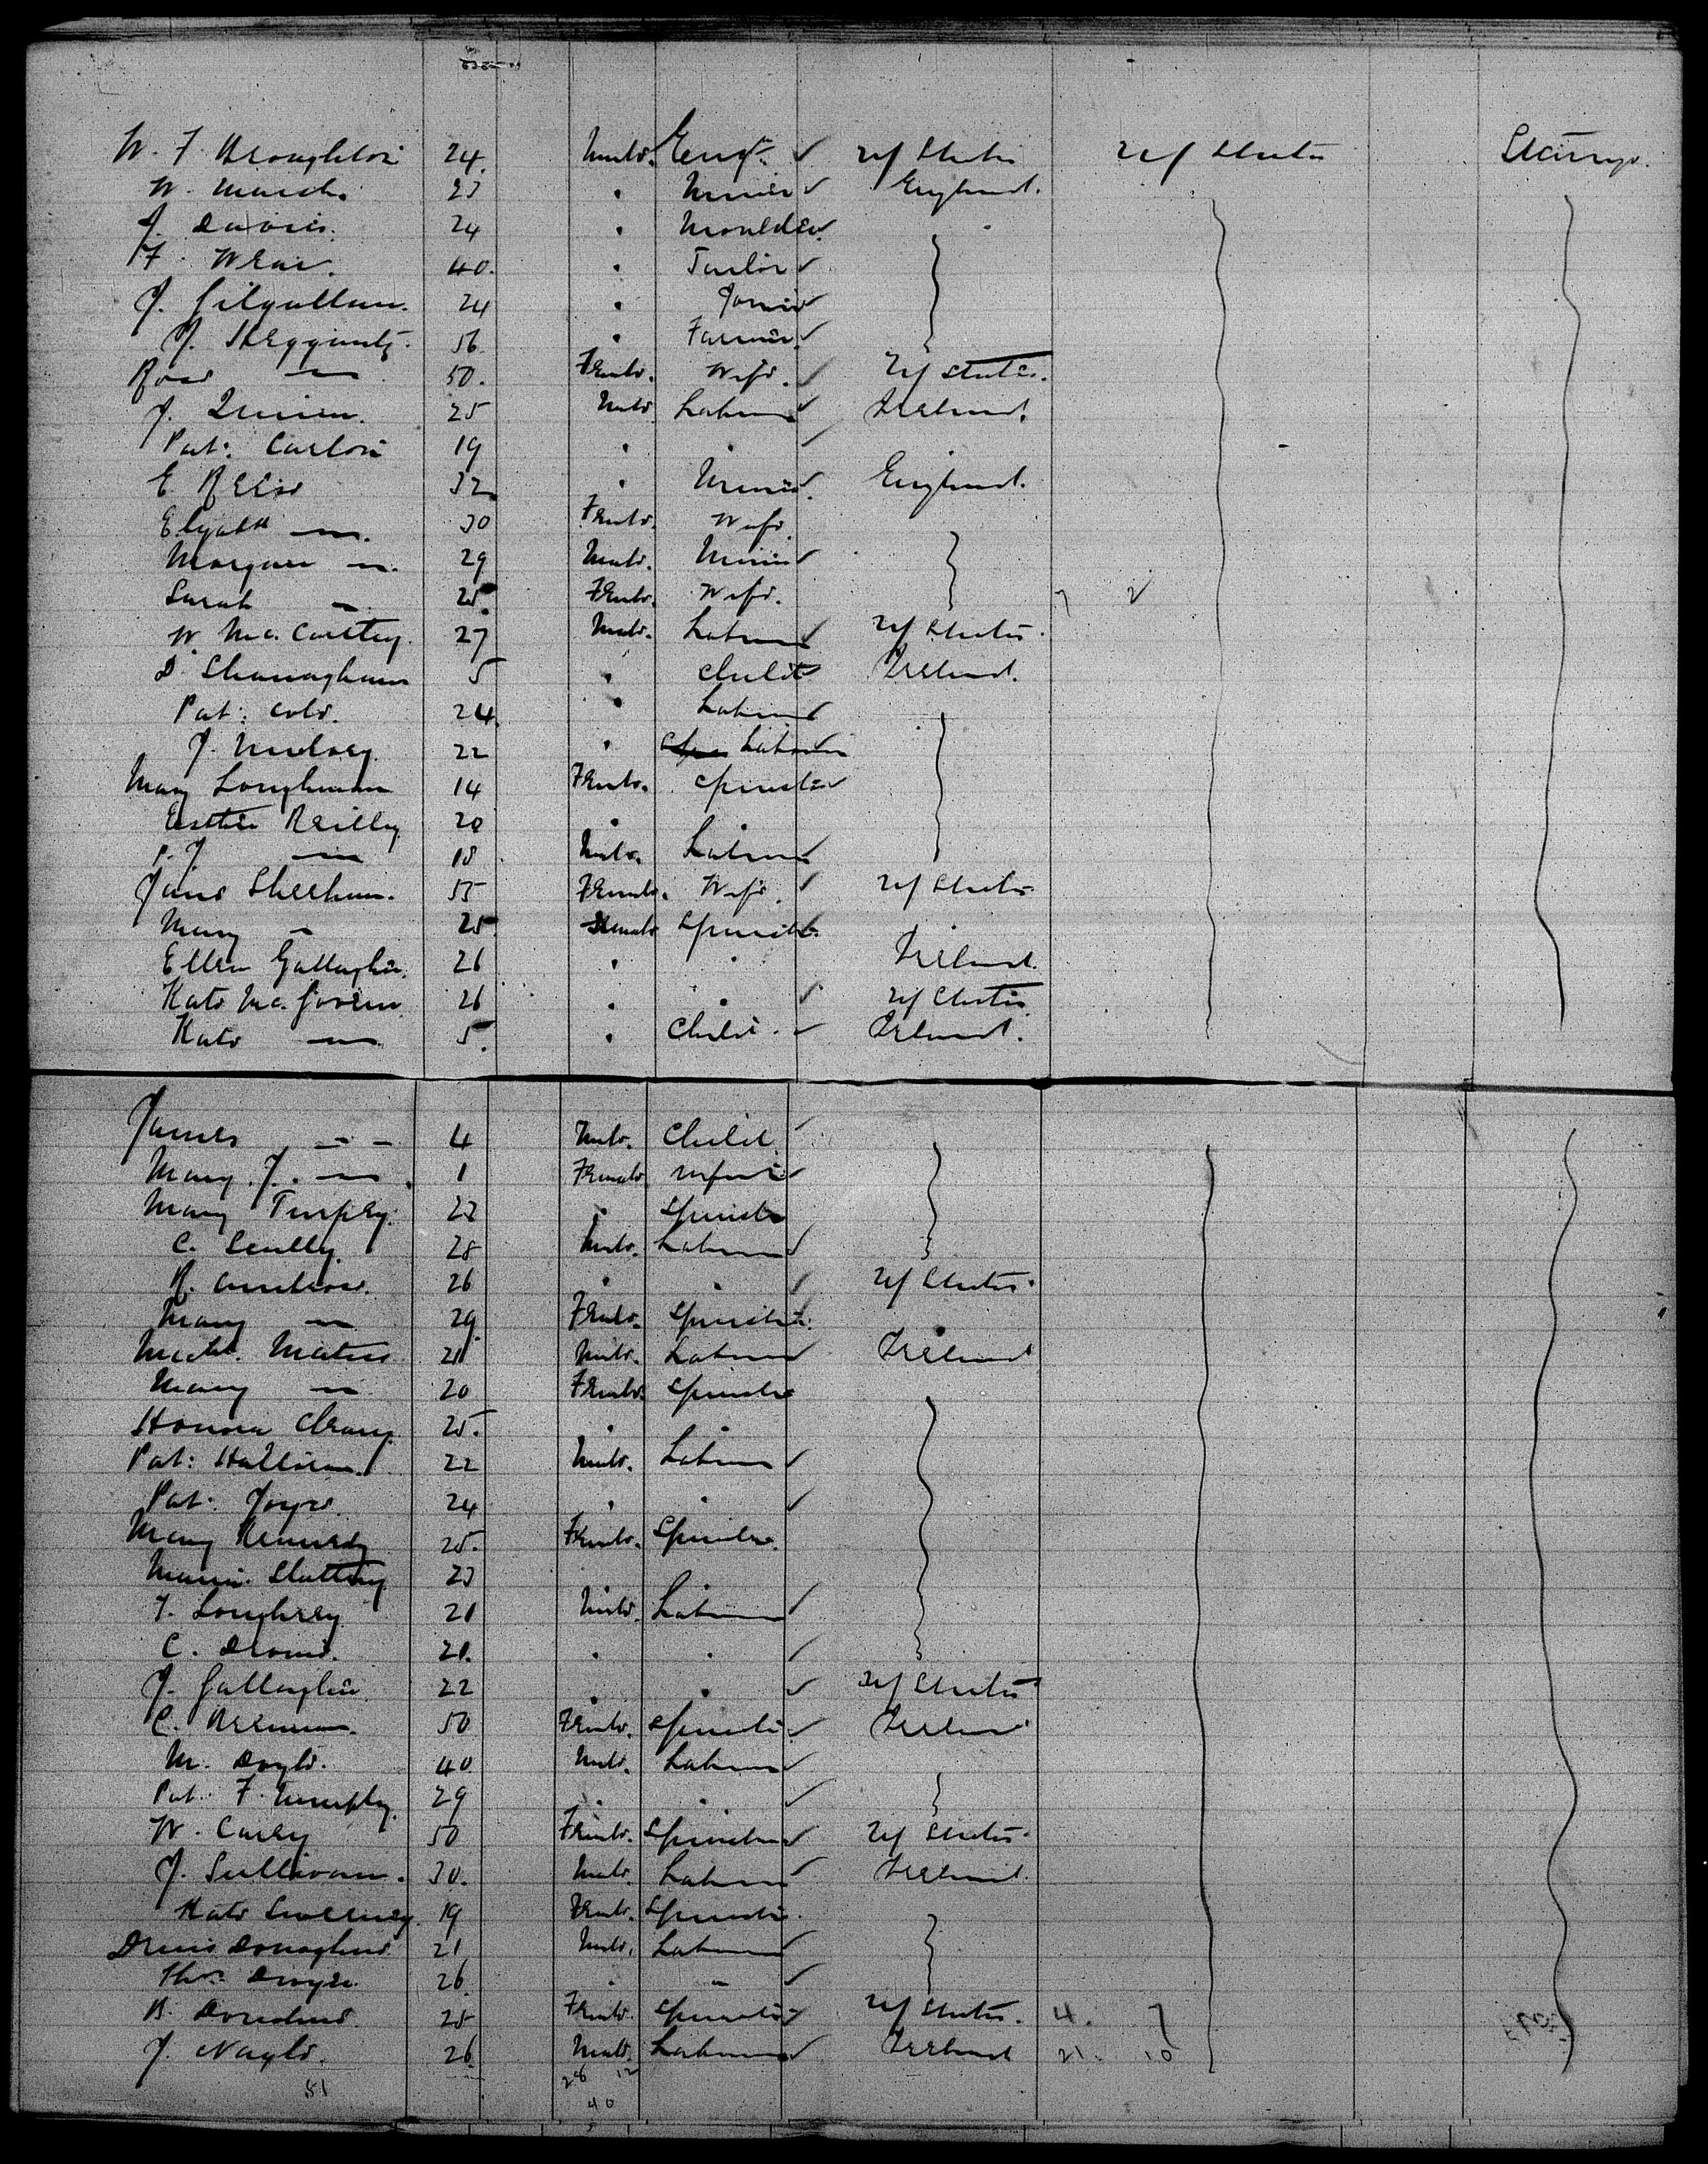 W. F. Broughton 24. Male. Engr. ✓ U/ States U/ States Steerage.
W. March. 23 " Miner ✓ England.
J. Davies. 24 " Moulder ✓
F. Wear. 40. " Tailor ✓
J. Gilgallan. 24 " Joiner ✓
J. 56. " Farmer ✓
Rose — 50. Female. Wife. ✓ U/ States.
J. Quinn. 25 Male Labourer ✓ Ireland.
Pat: Carlon 19 " " ✓
E. Rees 32 " Miner ✓ England.
Elizabth —. 30 Female. Wife.
Morgan —. 29 Male. Miner ✓
Sarah — 25. Female. Wife.
W. McCarthy. 27 Male. Labourer ✓ U/ States.
D. Shanaghan 5 " Child ✓ Ireland.
Pat: Cole. 24. " Labourer ✓
J. 22 " Labourer
Mary Loughman 14 Female. Spinster ✓
Esther Reilly 20 "
P. J. — 18 Male. Labourer ✓
Jane Sheehan. 55 Female. Wife. ✓ U/ States
Mary — 25 Female Spinster
Ellen Gallagher. 26 " " Ireland.
Kate McGovern. 26 " " ✓ U/ States
Kate — 5. " Child. ✓ Ireland.
James — 4 Male. Child. ✓
Mary J. — 1 Female Infant ✓
Mary 22 " Spinster
C. Scully. 28 Male. Labourer ✓
R. Ambrose. 26 " " ✓ U/ States.
Mary — 29. Female. Spinster.
Michl. 21 Male. Labourer ✓ Ireland
Mary — 20 Female. Spinster
Honora Cleary. 25. " "
Pat: Halloran. 22 Male. Labourer ✓
Pat: Joyce. 24 " " ✓
Mary Kennedy 25. Female. Spinster.
Maria Slattery 23
T. Loughrey. 21 Male. Labourer ✓
C. 21. " " ✓
J. Gallagher. 22 " " ✓ U/ States
C. Brennan. 50 Female. Spinster ✓ Ireland
M. Doyle. 40 Male. Labourer ✓
Pat: F. Murphy. 29 " " ✓
W. Carey 50 Female. Spinster ✓ U/ States.
J. Sullivan. 30. Male. Labourer ✓ Ireland.
Kate Sweeney. 19 Female. Spinster.
Denis Donaghue 21 Male. Labourer ✓
Thos. Dwyer. 26. " " ✓
B. Donahue. 25 Female. Spinster ✓ U/ States. 4. 7
J. Nagle. 26. Male. Labourer ✓ Ireland 21. 10
51 28 12
40